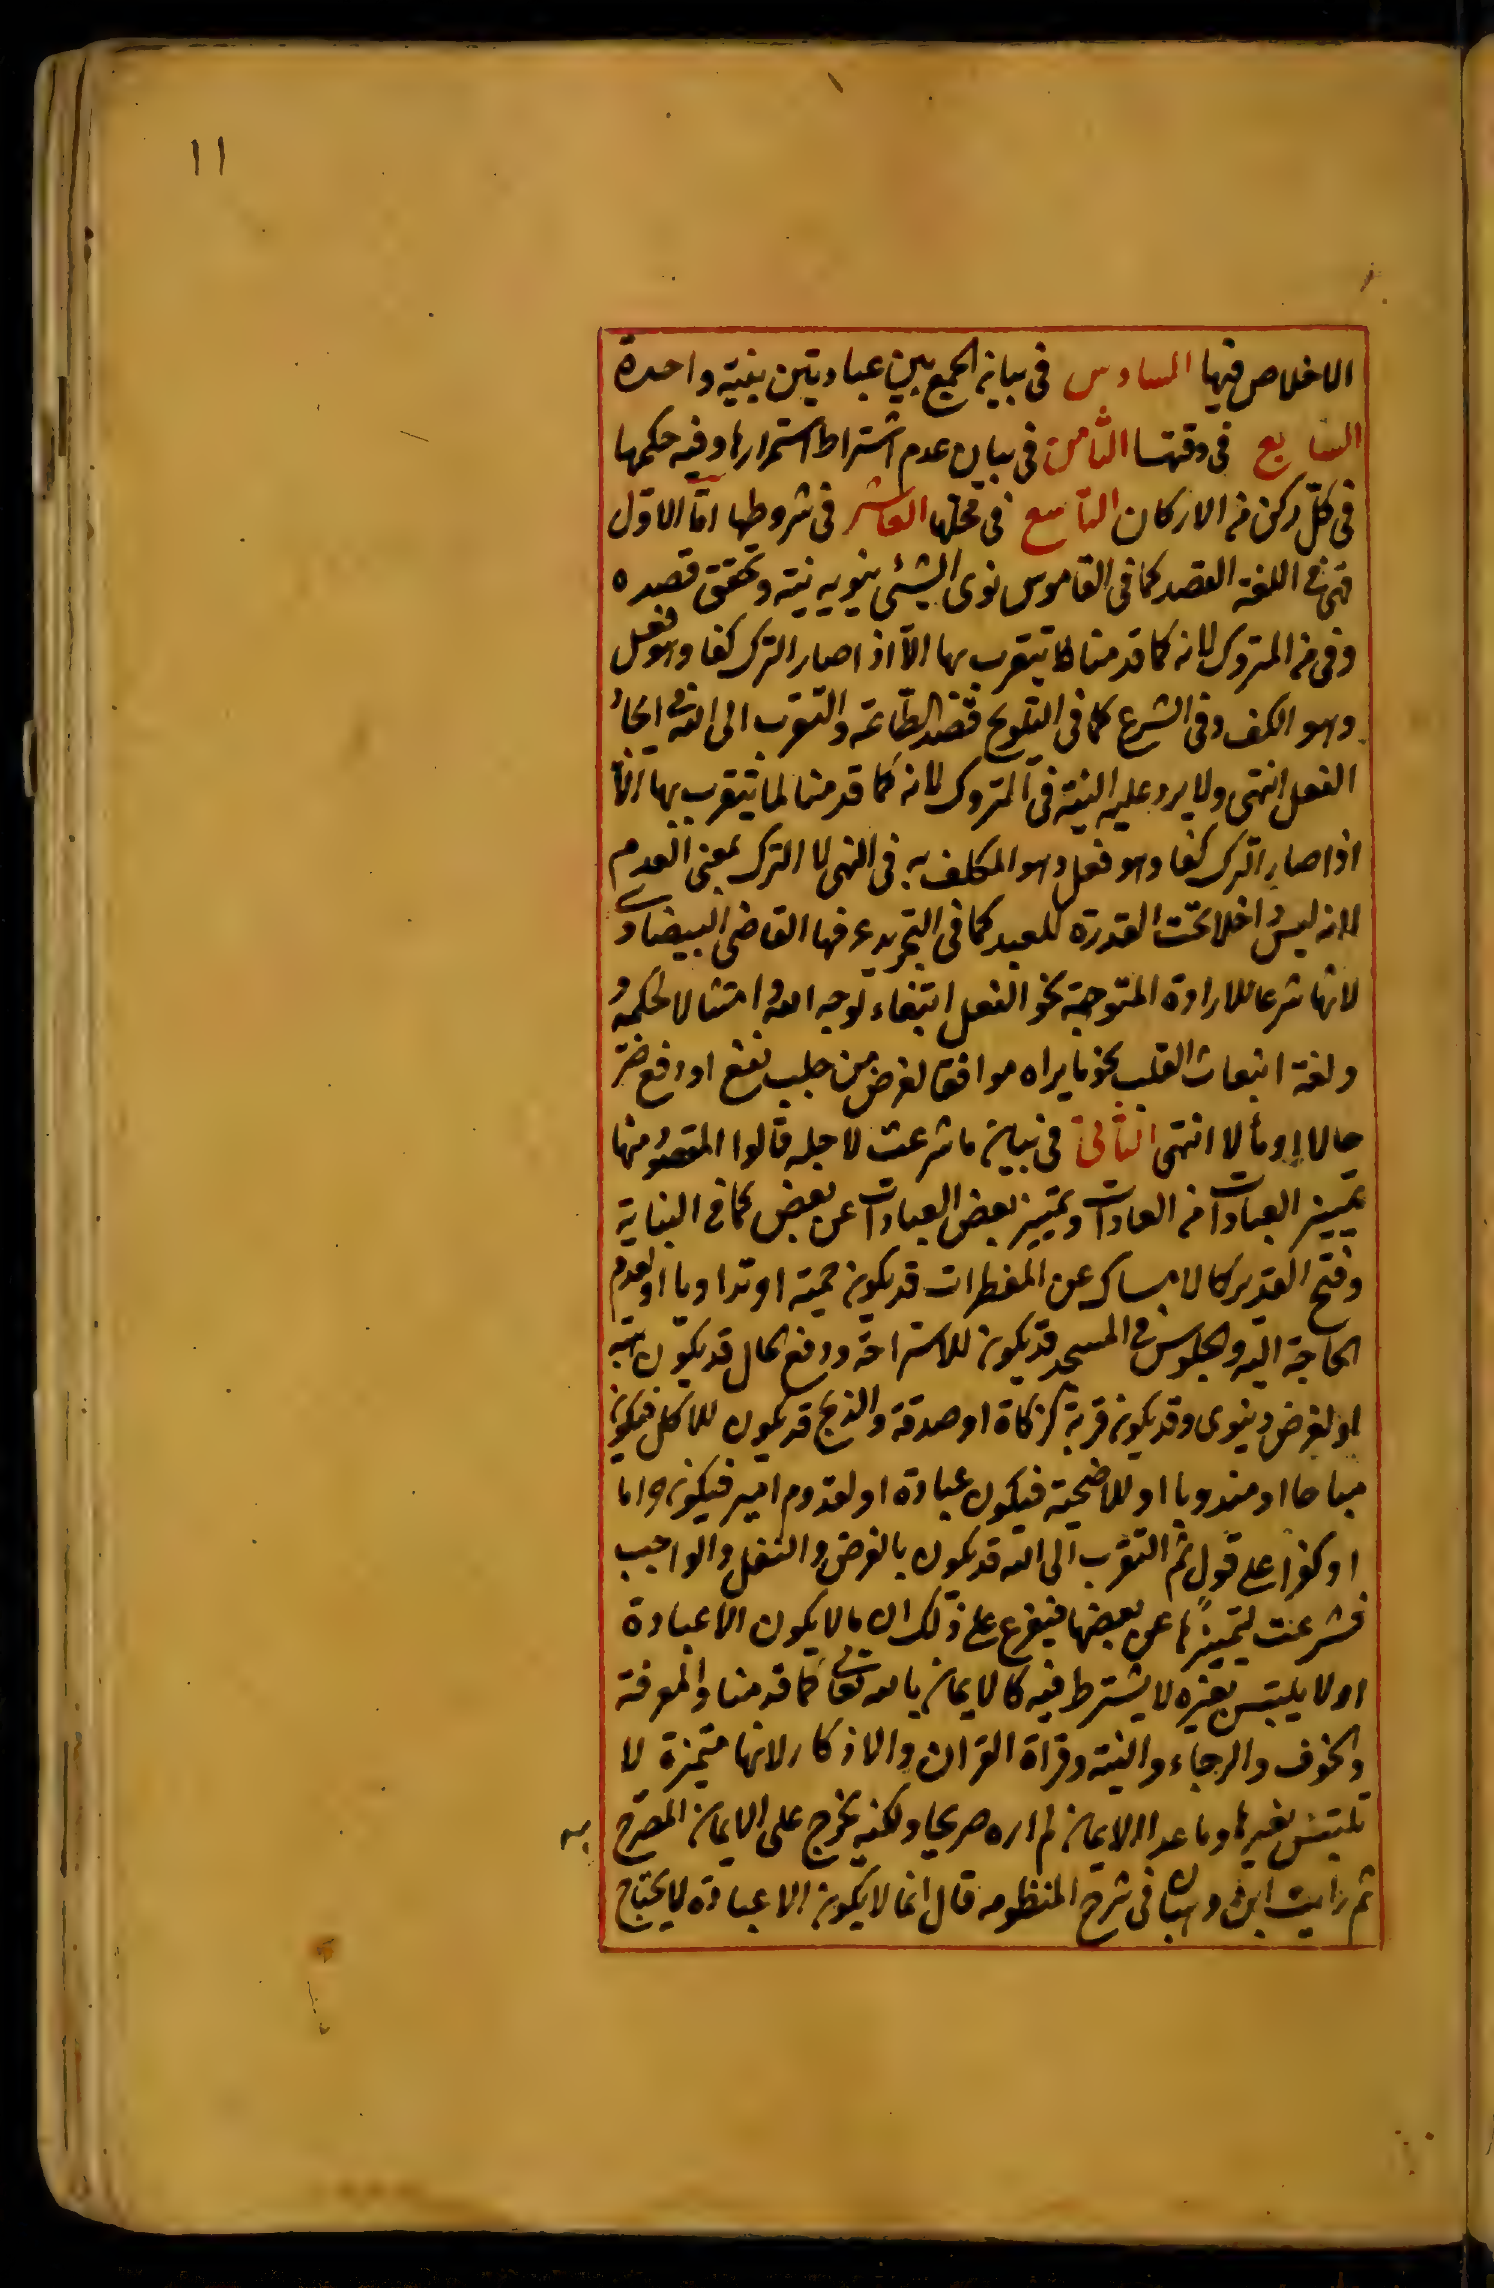 ١١
الاخلاص فيها السادس فى بيان الجمع بين عبادتين بنية واحدة
السابع فى وقتها الثامن فى بيان عدم اشتراط استمرارها وفيه حكمها
فى كلّ ركن من الاركان التاسع فى محلها العاشر فى شروطها امّا الاوّل
فهى فى اللغة القصد كما فى القاموس نوى الشئى ينويه نية وتحقق قصده
وفى من المتروك لانه كما قدمنا لا يتقرب بها الّا اذا صار الترك كفا وهو فعل
وهو الكف وفى الشرع كما فى التلويح قصد الطّاعة والتقرب الى الله فى ايجاد
الفعل انتهى ولا يرد عليه النية فى المتروك لانه كما قدمنا لما يتقرب بها الّا
اذا صار الترك كفا وهو فعل وهو المكلف به فى النهى لا الترك بمعنى العدم
لانه ليس داخلا تحت القدرة للعبد كما فى التحرير وعرفها القاضى البيضاوى
لانها شرعا للارادة المتوجهة نحو الفعل ابتغاء لوجه الله وامتثالا لحكمه
ولغة انبعاث القلب نحو ما يراه موافقا لغرض من جلب نفع او دفع ضر
حالا او مألا انتهى الثانى فى بيان ما شرعت لاجله قالوا المقصود منها
تمييز العبادات من العادات وتمييز بعض العبادات عن بعض كما فى البناية
وفتح القدير كالامساك عن المفطرات قد يكون حمية او تداويا او لعدم
الحاجة اليه والجلوس فى المسجد قد يكون للاستراحة ودفع المال قد يكون هبة
او لغرض دنيوى وقد يكون قربة كزكاة او صدقة والذبح قد يكون للاكل فيكون
مباحا او مندوبا او للاضحية فيكون عبادة او لقدوم امير فيكون حراما
او كفرا على قول ثم التقرب الى الله قد يكون بالفرض والنفل والواجب
فشرعت لتمييزها عن بعضها فيتفرع على ذلك ان ما لا يكون الا عبادة
او لا يلتبس بغيره لا يشترط فيه كالايمان بالله تعالى كما قدمنا والمعرفة
والخوف والرجاء والنية وقراة القران والاذكار لانها متميزة لا
تلتبس بغيرها وما عدا الايمان لم اره صريحا ولكنه يخرج على الايمان المصرح به
ثم رايت ابن وهبان فى شرح المنظومه قال انما لا يكون الا عبادة لا يحتاج